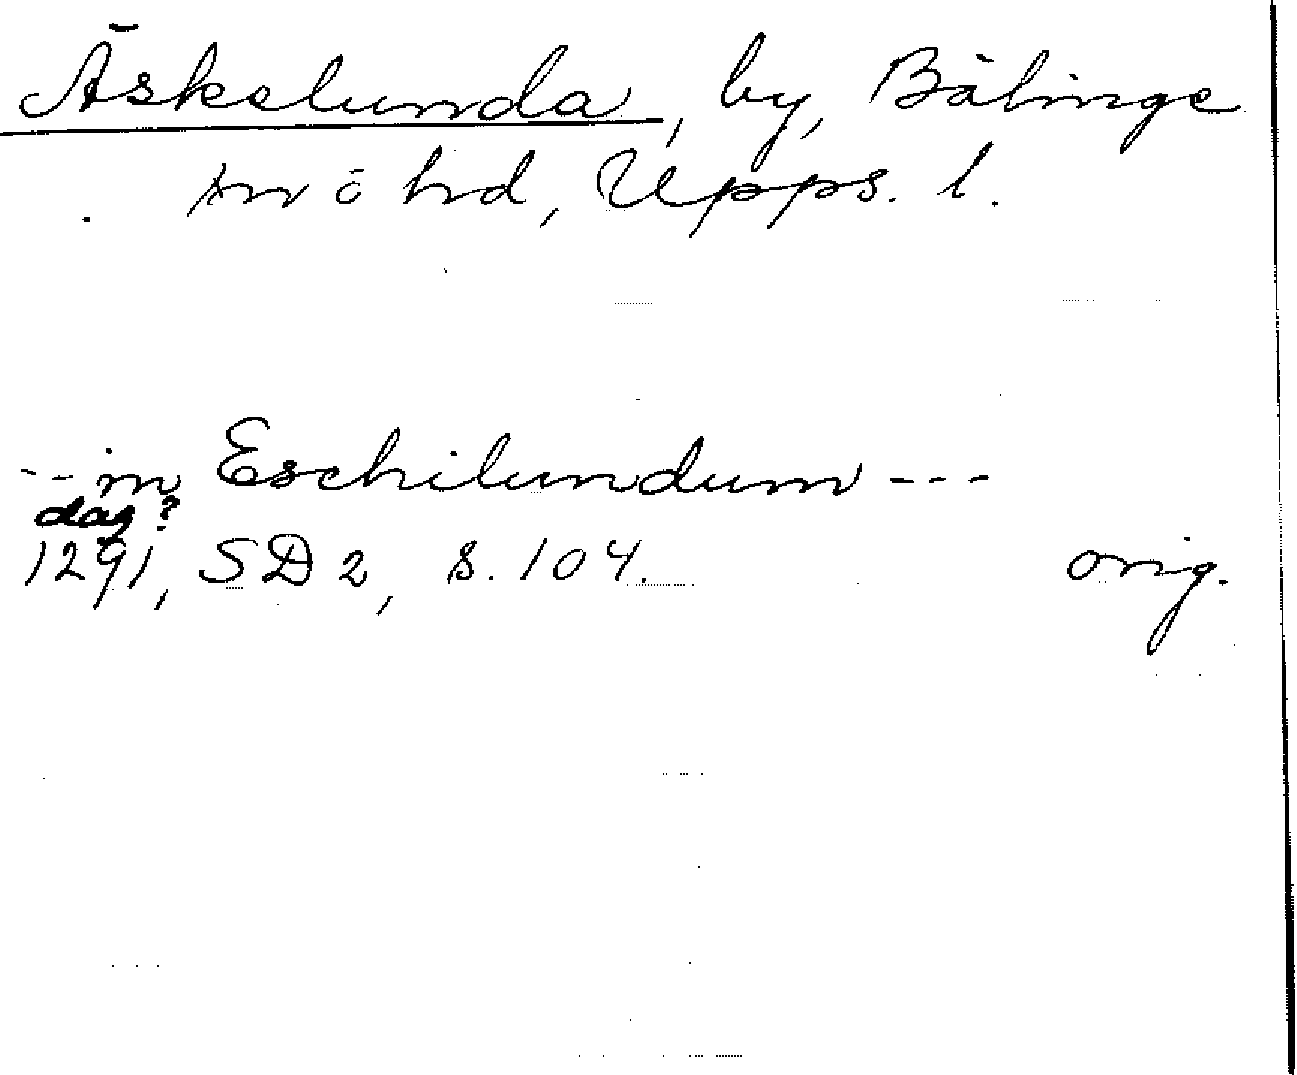 Äskelunda, by, Bälinge
sn o hd, Upps. l.
--in Eschilundum---
dag?
1291, SD 2, s. 104. orig.